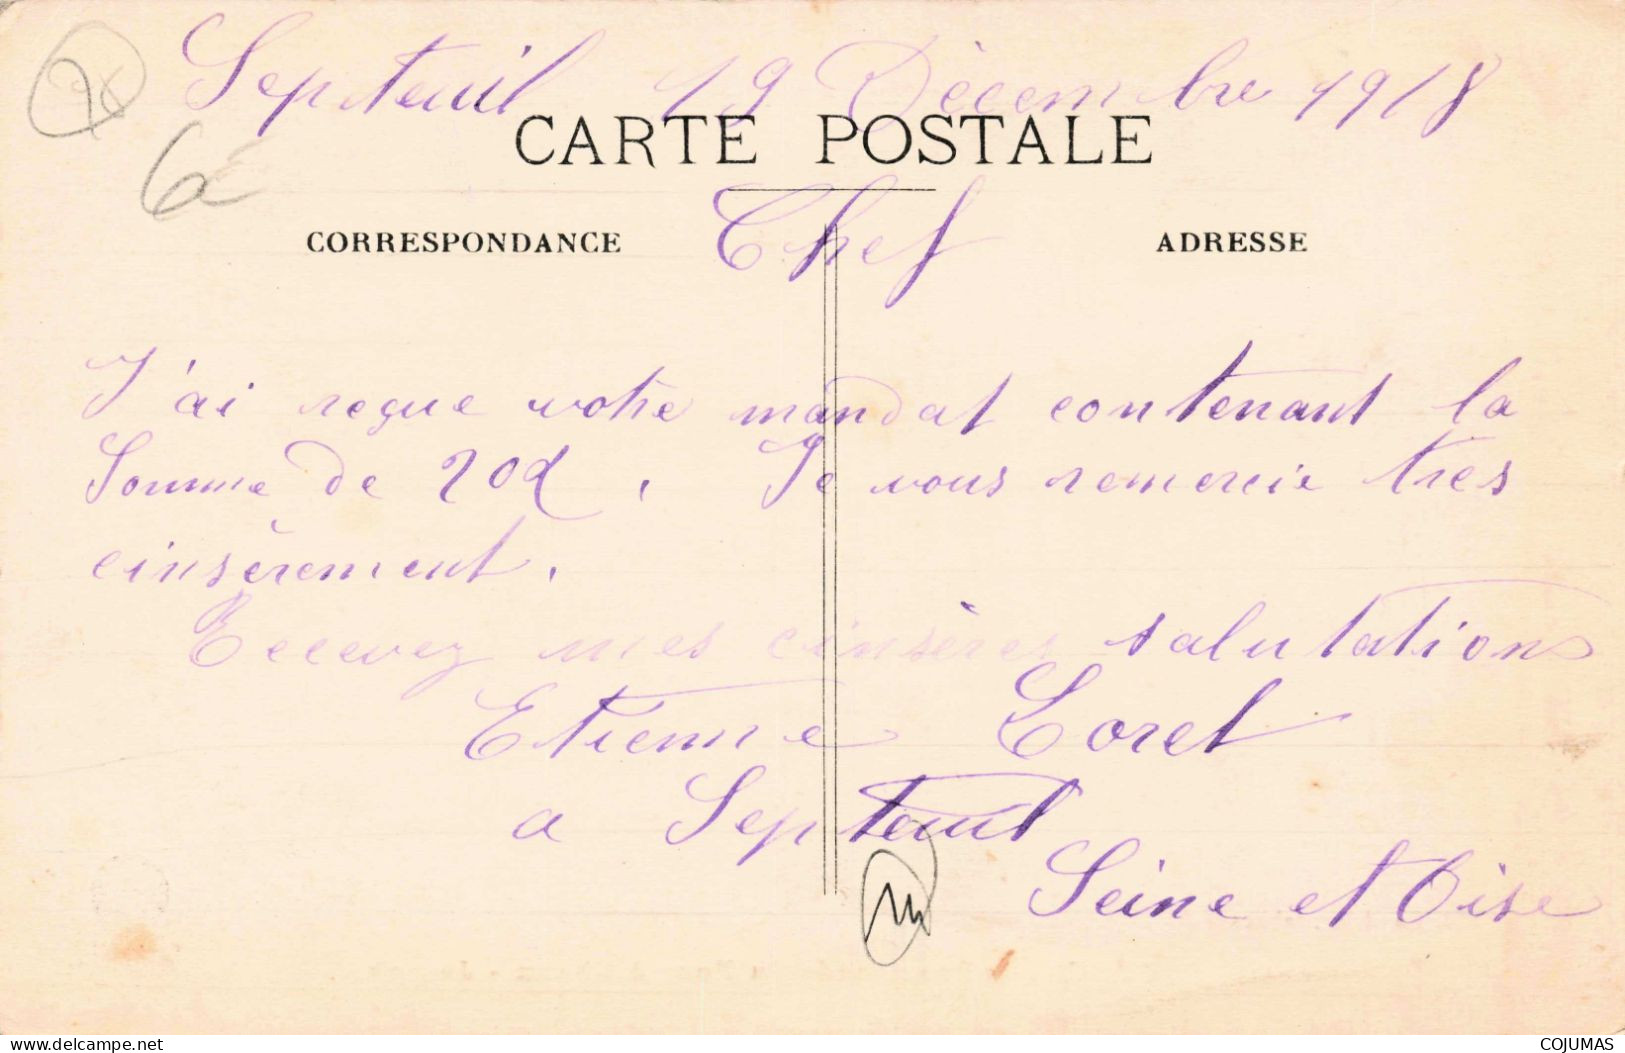 Septeuil 19 Décembre 1918
CARTE POSTALE
Chef
CORRESPONDANCE
ADRESSE
J'ai reçue votre mandat contenant la
Somme de 20d. Je vous remercie très
cinsèrement.
Recevez mes cinsères salutations
Etienne Loret
a Septeuil
Seine et Oise
delcampe.net
COJUMAS